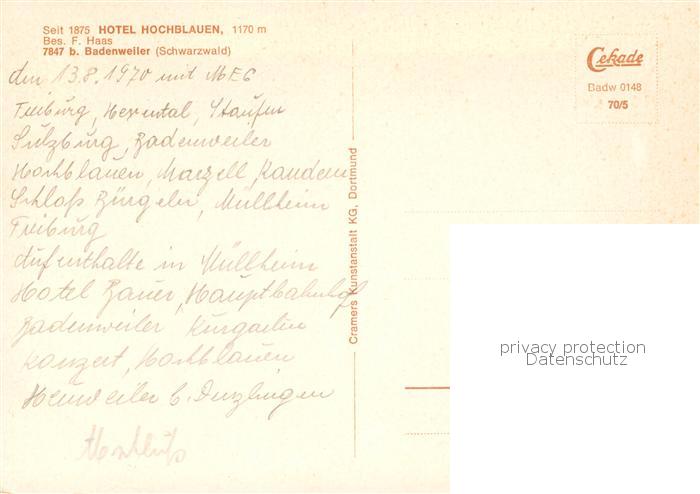 Seit 1875 HOTEL HOCHBLAUEN, 1170 m
Bes. F. Haas
7847 b. Badenweiler (Schwarzwald)
den 13.8.1970 mit MEG
Freiburg, Hexental, Staufen
Sulzburg, Badenweiler
Hochblauen, Marzell, Kandern
Schloß Bürgeln, Müllheim
Freiburg
Aufenthalte in Müllheim
Hotel Bauer, Hauptbahnhof
Badenweiler Kurgarten
Konzert, Hochblauen
Heuweiler b. Denzlingen
Abschluß
Cramers Kunstanstalt KG, Dortmund
Cekade
Badw 0148
70/5
privacy protection
Datenschutz